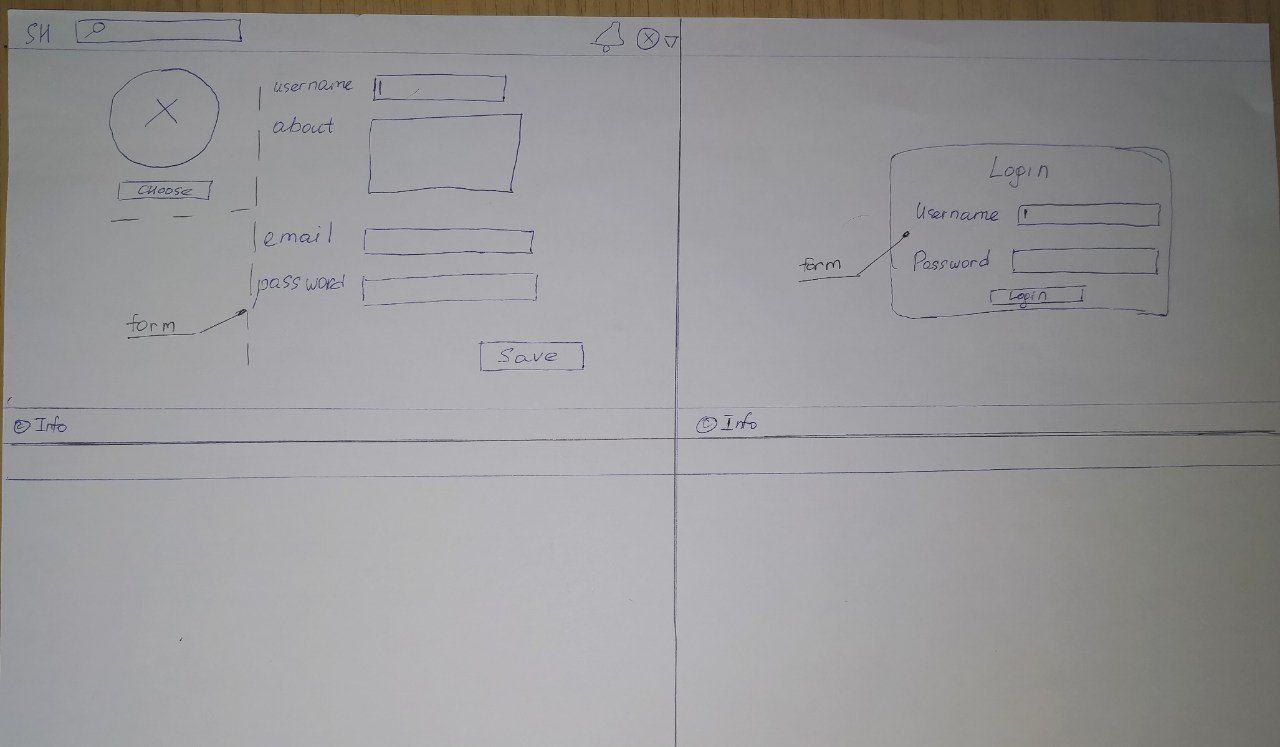 SH
username
about
CHOOSE
email
password
form
Save
© Info
Login
Username
form
Password
Login
© Info